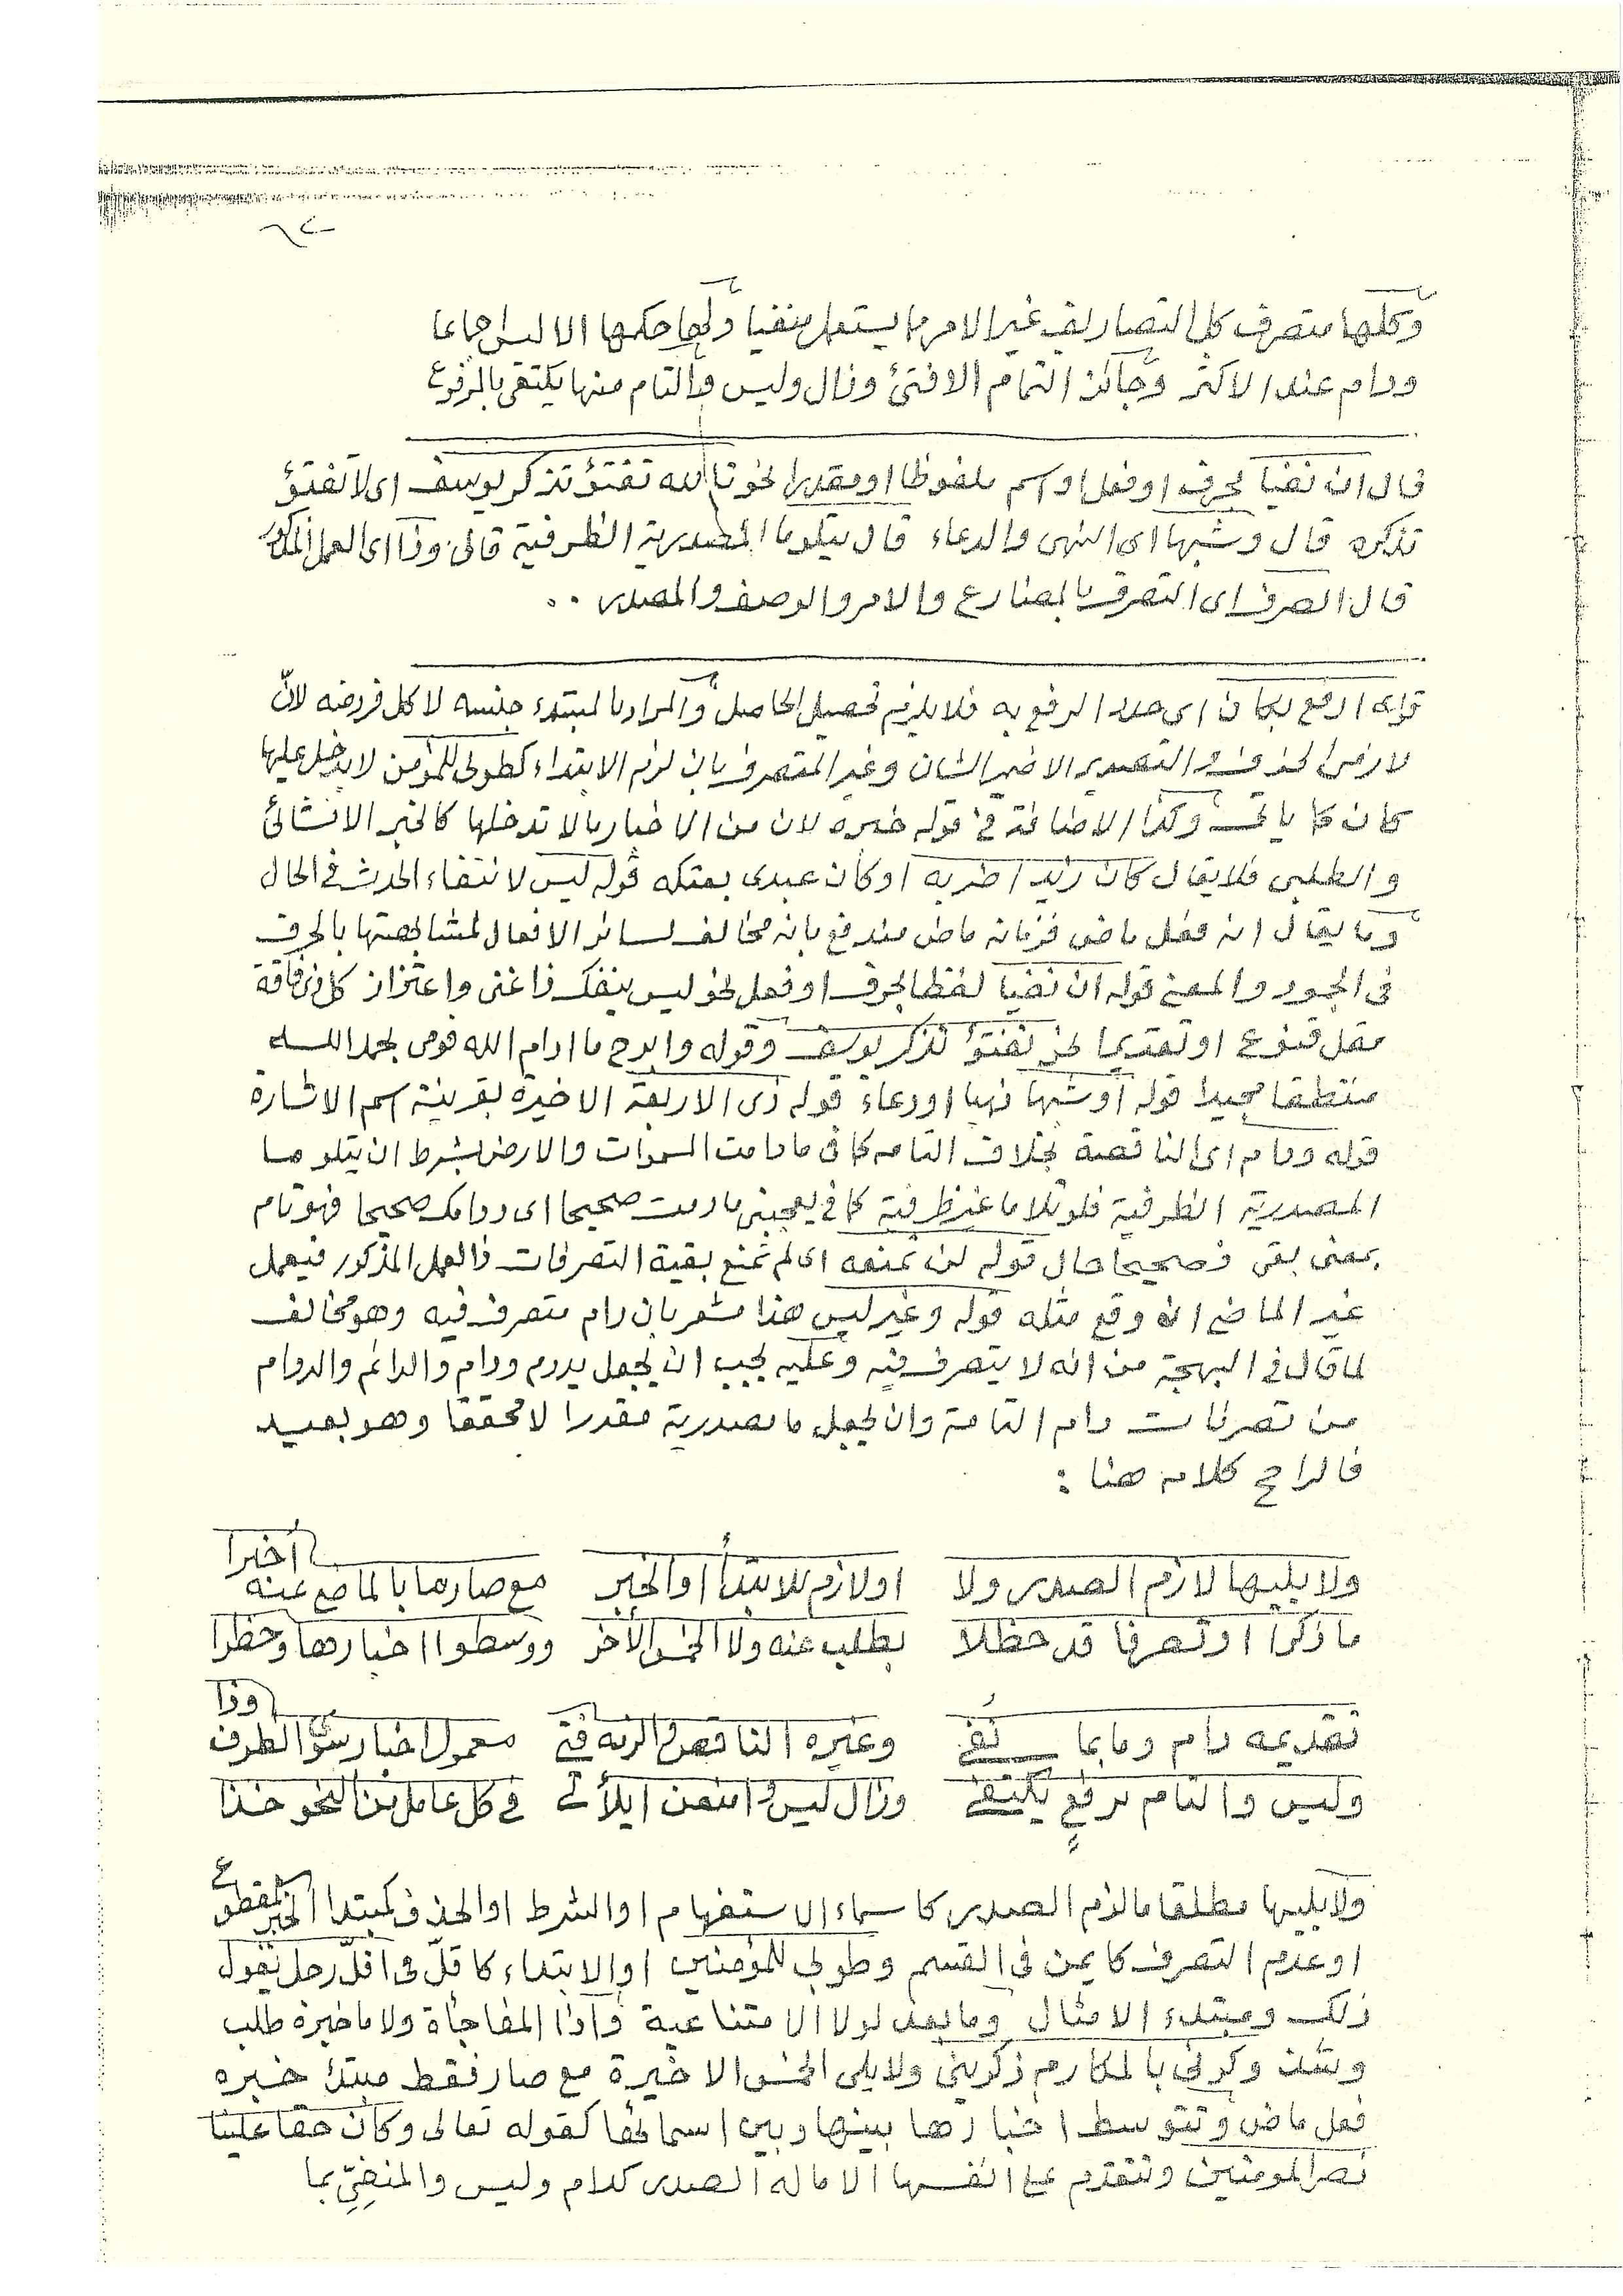 وكلها متصرف كل التصاريف غير الامر مما يستعمل منفيا ولها حكمها الا ليس جماعا
ودام عند الاكثر وجائز التمام الا فتئ وزال وليس والتام منها يكتفى بالمرفوع
قال ان نفيا بحرف او فعل او اسم ملفوظا او مقدرا نحو تالله تفتؤ تذكر يوسف اى لا تفتؤ
تذكره قال وشبهها اى النهى والدعاء قال يتلو ما المصدرية الظرفية قال وذا اى العمل المذكور
قال الصرف اى التصرف بالمضارع والامر والوصف والمصدر ..
قوله ارفع بكان اى جدد الرفع به فلا يلزم تحصيل الحاصل والمراد بالمبتدء جنسه لا كل فرد منه لانّ
لازم الحذف والتصدير الا ضمير الشان وغير المتصرف بان لزم الابتداء كطوبى للمؤمن لا يدخل عليها
كان كما ياتى وكذا الاضافة فى قوله خبره لان من الاخبار ما لا تدخلها كالخبر الانشائى
والطلبى فلا يقال كان زيد اضربه او كان عبدى بعتكه قوله ليس لانتفاء الحدث فى الحال
وما يقال انه فعل ماض فزمانه ماض مندفع بانه مخالف لسائر الافعال لمشابهتها بالحرف
فى الجمود والمعنى قوله ان نفيا لفظا بحرف او فعل نحو ليس ينفك ذا غنى واعتزاز كل ذى فاقة
مقل قنوع او تقديرا نحو تفتؤ تذكر يوسف وقوله وابرح ما ادام الله قومى بحمد الله
منتطقا مجيدا قوله او شبهها نهيا او دعاء قوله ذى الاربعة الاخيرة بقرينة اسم الاشارة
قوله ودام اى الناقصة بخلاف التامه كما فى ما دامت السموات والارض بشرط ان يتلو ما
المصدرية الظرفية فلو تلا ما غير ظرفية كما فى يعجبنى ما دمت صحيحا اى دوامك صحيحا فهو تام
بمعنى بقى وصحيحا حال قوله لن تمنعه اى لم تمنع بقية التصرفات ذا العمل المذكور فيعمل
غير الماضى ان وقع مثله قوله وغير ليس هذا مشعر بان دام متصرف فيه وهو مخالف
لما قال فى البهجة من انه لا يتصرف فيه وعليه يجب ان يجعل يدوم ودام والدائم والدوام
من تصرفات دام التامة وان يجعل ما مصدرية مقدرا لا محققا وهو بعيد
فالراجح كلامه هنا :
ولا يليها لازم الصدر ولا اولازم للابتدأ او الخبر مع صار ما بالماضى عنه أخبرا
ما ذكرا او تصرفا قد حظلا بطلب عنه ولا الخمس الأخر ووسطوا اخبارها وحظرا
تقديمه دام وما بما نُفى وغيره الناقص والزمه فتى معمول اخبار سوى الظرف وذا
وليس والتام برفعٍ يكتفى وزال ليس وامنعن ايلأتى فى كل عامل من النحو خذا
ولا يليها مطلقا ما لزم الصدر كاسماء الاستفهام او الشرط او الحذف كمبتدا الخبر المقطوع
او عدم التصرف كايمن فى القسم وطوبى للمؤمنين او الابتداء كاقلّ فى اقلّ رجل يقول
ذلك ومبتدء الامثال وما بعد لولا الامتناعية واذا المفاجأة ولا ما خبره طلب
وشذ وكونى بالمكارم ذكرينى ولا يلى الخمس الاخيرة مع صار فقط مبتدأ خبره
فعل ماض وتتوسط اخبارها بينها وبين اسمائها كقوله تعالى وكان حقا علينا
نصر المومنين وتتقدم على انفسها الا ما له الصدر كدام وليس والمنفِيِّ بما